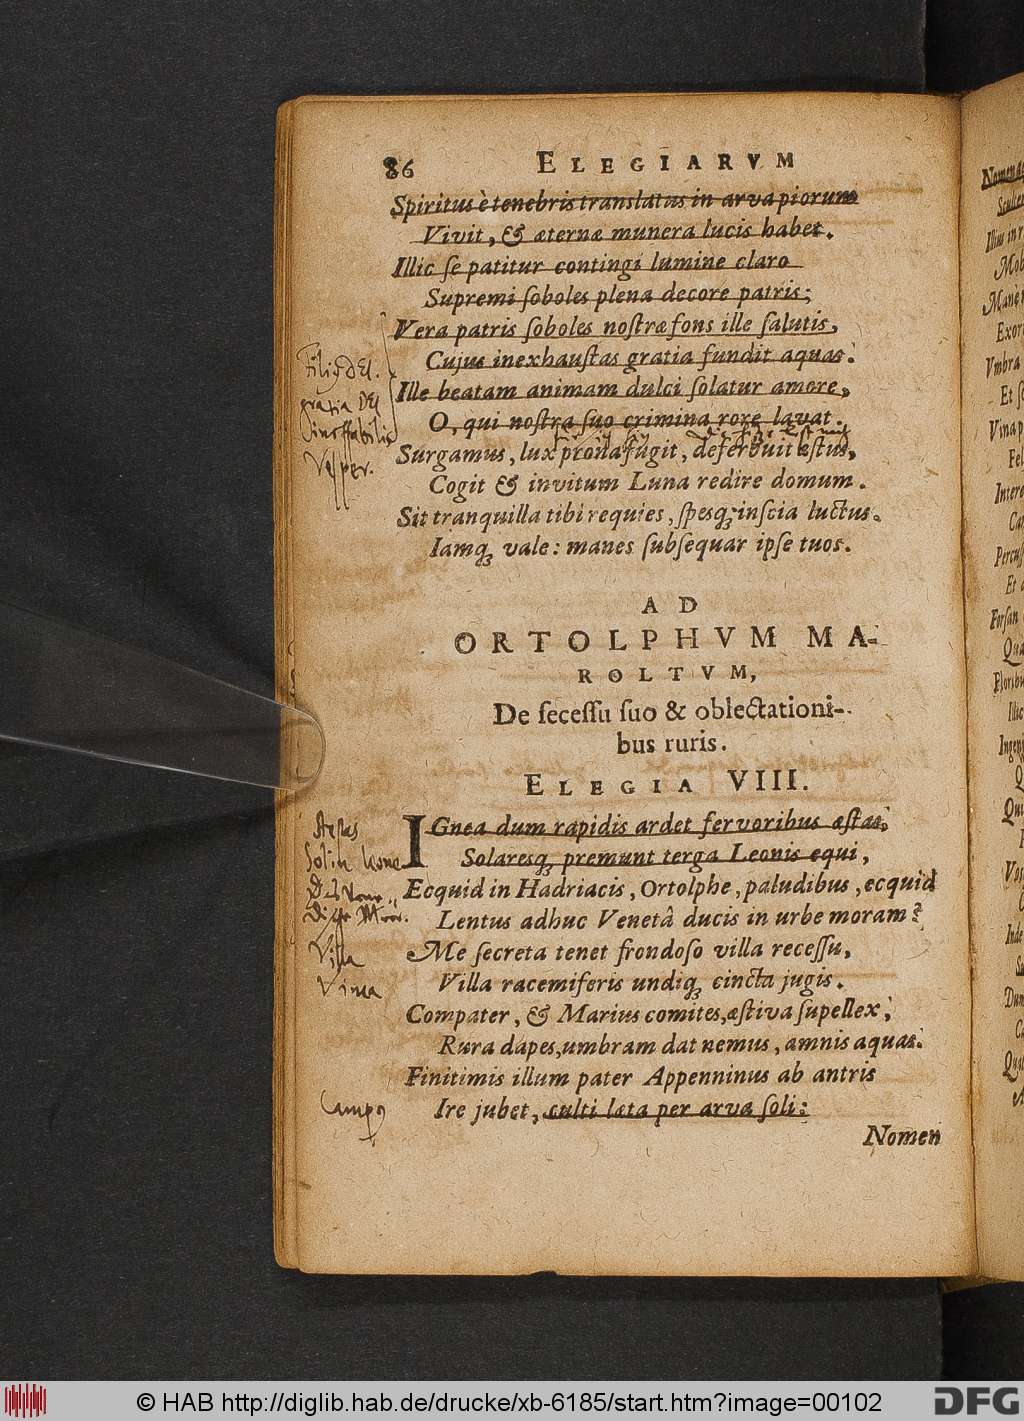 86 ELEGIARVM
Spiritus è tenebris translatus in arva piorum
Vivit, & æternæ munera lucis habet.
Illic se patitur contingi lumine claro
Supremi soboles plena decore patris;
Vera patris soboles nostræ fons ille salutis,
Cujus inexhaustas gratia fundit aquas.
Ille beatam animam dulci solatur amore,
O, qui nostra suo crimina rore lavat.
Surgamus, lux prona fugit, deferbuit æstus,
Cogit & invitum Luna redire domum.
Sit tranquilla tibi requies, spesq; inscia luctus.
Iamq; vale: manes subsequar ipse tuos.
gratia DEI
Vesper.
AD
ORTOLPHVM MA-
ROLTVM,
De secessu suo & oblectationi-
bus ruris.
ELEGIA VIII.
IGnea dum rapidis ardet fervoribus æstas,
Solaresq; premunt terga Leonis equi,
Ecquid in Hadriacis, Ortolphe, paludibus, ecquid
Lentus adhuc Venetâ ducis in urbe moram?
Me secreta tenet frondoso villa recessu,
Villa racemiferis undiq; cincta jugis.
Compater, & Marius comites, æstiva supellex,
Rura dapes, umbram dat nemus, amnis aquas.
Finitimis illum pater Appenninus ab antris
Ire jubet, culti læta per arva soli:
Nomen
Aestas
Villa
Vinea
Campus
© HAB http://diglib.hab.de/drucke/xb-6185/start.htm?image=00102
DFG